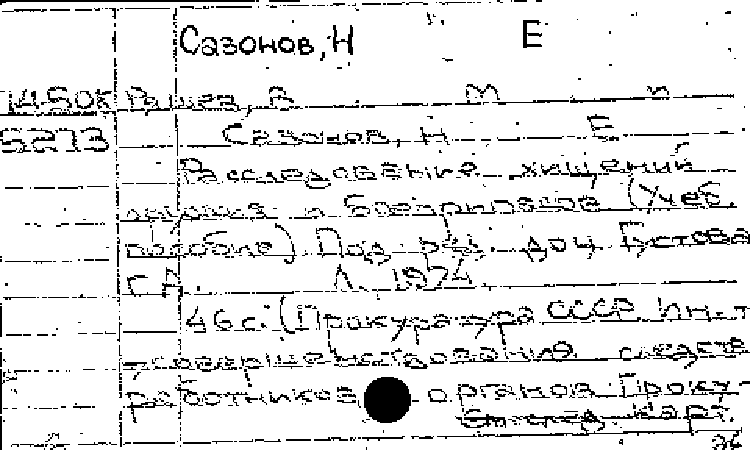 Сазонов, Н Е
145 ОК Ращев, В М и
5273 Сазонов, Н Е
Расследование хищений
оружия и боеприпасов (Учеб.
пособие) Под ред. доц. Густова
Г.А. Л. 1974
46 с. (Прокуратура СССР Ин-т
усовершенствования следств
работников органов Проку-
См. след. карт.